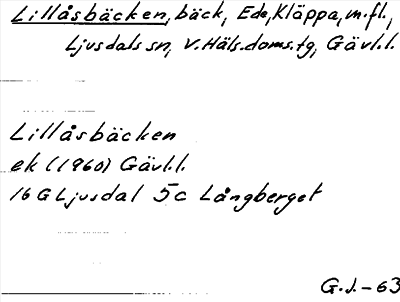 Lillåsbäcken, bäck, Ede, Kläppa, m.fl.,
Ljusdals sn, V.Häls.doms.tg, Gävl.l.
Lillåsbäcken
ek (1960) Gävl.l.
16 G Ljusdal 5c Långberget
G.J.-63